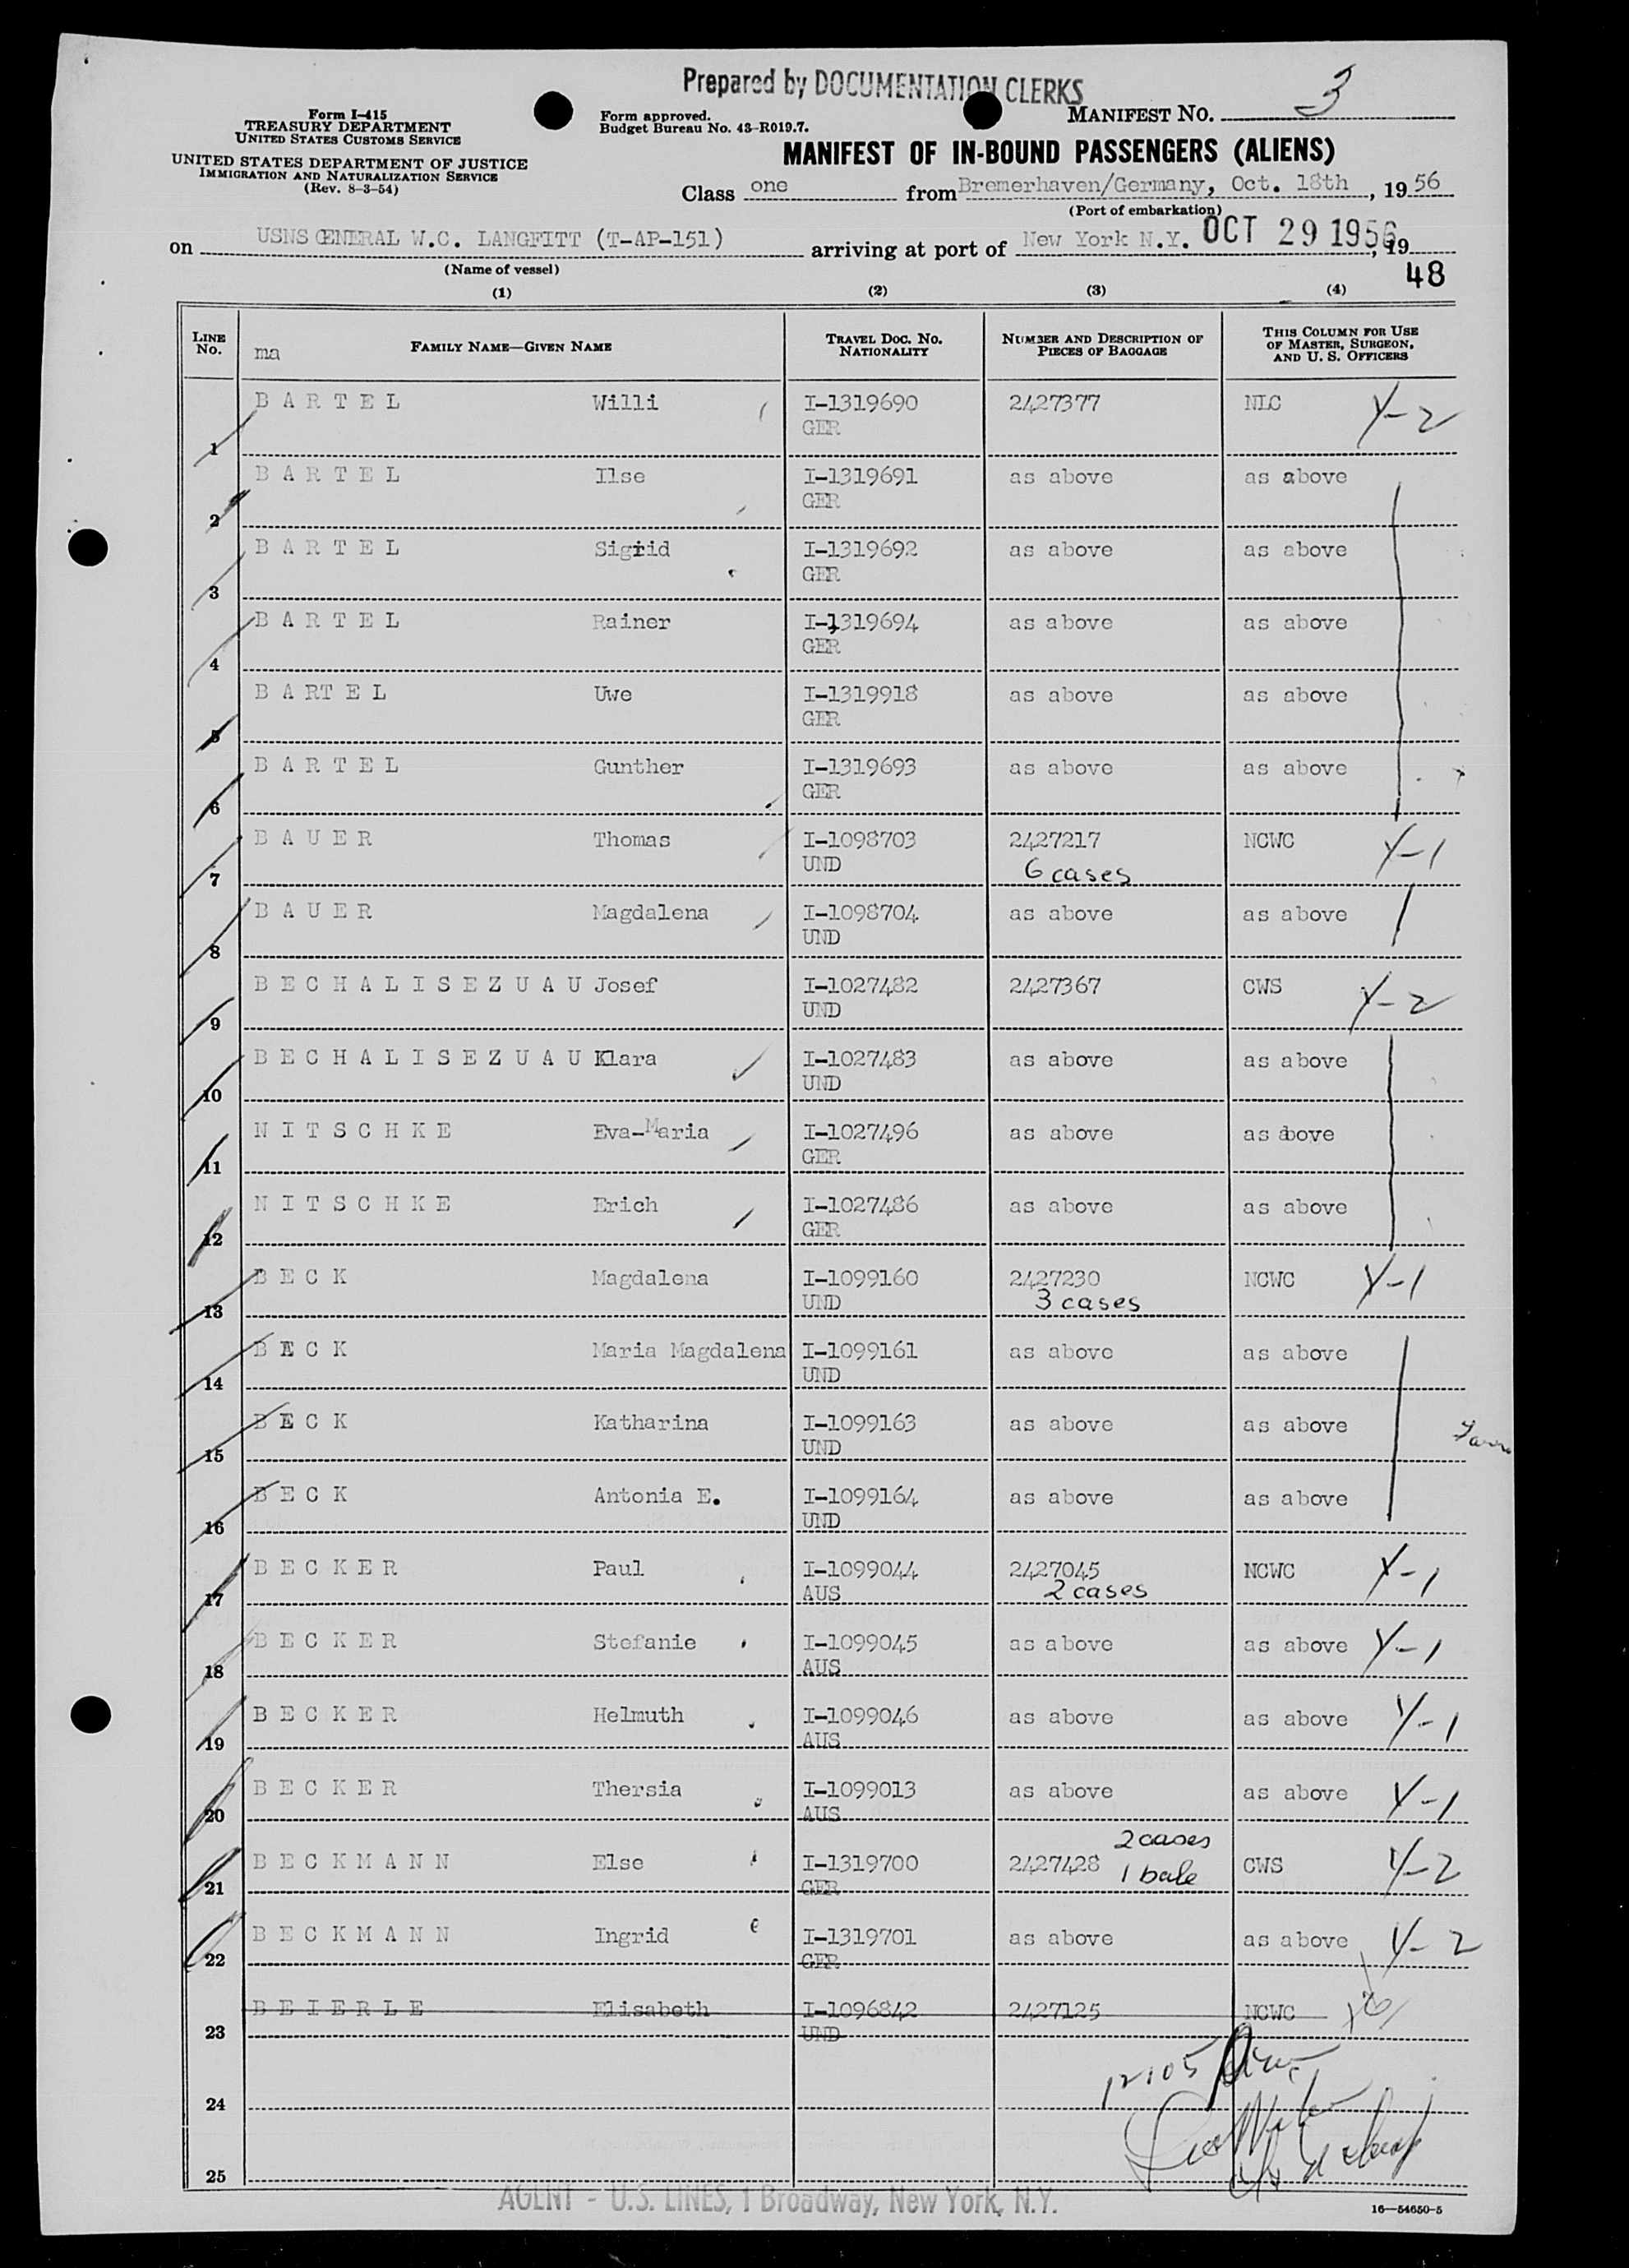 Prepared by DOCUMENTATION CLERKS
Form I-415
TREASURY DEPARTMENT
UNITED STATES CUSTOMS SERVICE
UNITED STATES DEPARTMENT OF JUSTICE
IMMIGRATION AND NATURALIZATION SERVICE
(Rev. 8-3-54)
Form approved.
Budget Bureau No. 43-R019.7.
MANIFEST NO. 3
MANIFEST OF IN-BOUND PASSENGERS (ALIENS)
Class one from Bremerhaven/Germany, Oct. 18th, 1956
(Port of embarkation)
on USNS GENERAL W.C. LANGFITT (T-AP-151) arriving at port of New York N.Y. OCT 29 1956, 19
(Name of vessel)
48
(1) (2) (3) (4)
LINE NO. ma FAMILY NAME—GIVEN NAME TRAVEL DOC. NO. NATIONALITY NUMBER AND DESCRIPTION OF PIECES OF BAGGAGE THIS COLUMN FOR USE OF MASTER, SURGEON, AND U. S. OFFICERS
B A R T E L Willi I-1319690 2427377 NLC Y-2
GER
1
B A R T E L Ilse I-1319691 as above as above
GER
2
B A R T E L Sigrid I-1319692 as above as above
GER
3
B A R T E L Rainer I-1319694 as above as above
GER
4
B A RT E L Uwe I-1319918 as above as above
GER
5
B A R T E L Gunther I-1319693 as above as above
GER
6
B A U E R Thomas I-1098703 2427217 NCWC Y-1
UND 6 cases
7
B A U E R Magdalena I-1098704 as above as above
UND
8
B E C H A L I S E Z U A U Josef I-1027482 2427367 CWS Y-2
UND
9
B E C H A L I S E Z U A U Klara I-1027483 as above as above
UND
10
N I T S C H K E Eva-Maria I-1027496 as above as above
GER
11
N I T S C H K E Erich I-1027486 as above as above
GER
12
B E C K Magdalena I-1099160 2427230 NCWC Y-1
UND 3 cases
13
B E C K Maria Magdalena I-1099161 as above as above
UND
14
B E C K Katharina I-1099163 as above as above
UND
15
B E C K Antonia E. I-1099164 as above as above
UND
16
B E C K E R Paul I-1099044 2427045 NCWC Y-1
AUS 2 cases
17
B E C K E R Stefanie I-1099045 as above as above Y-1
AUS
18
B E C K E R Helmuth I-1099046 as above as above Y-1
AUS
19
B E C K E R Thersia I-1099013 as above as above Y-1
AUS
20
2 cases
B E C K M A N N Else I-1319700 2427428 1 bale CWS Y-2
GER
21
B E C K M A N N Ingrid I-1319701 as above as above Y-2
GER
22
B E I E R L E Elisabeth I-1096842 2427125 NCWC
UND
23
24
25
AGENT - U.S. LINES, 1 Broadway, New York, N.Y.
16—54650-5